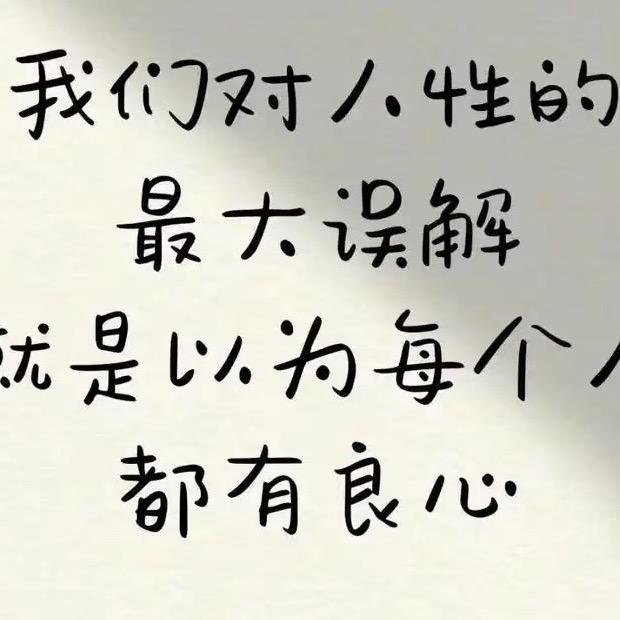 我们对人性的
最大误解
就是以为每个人
都有良心